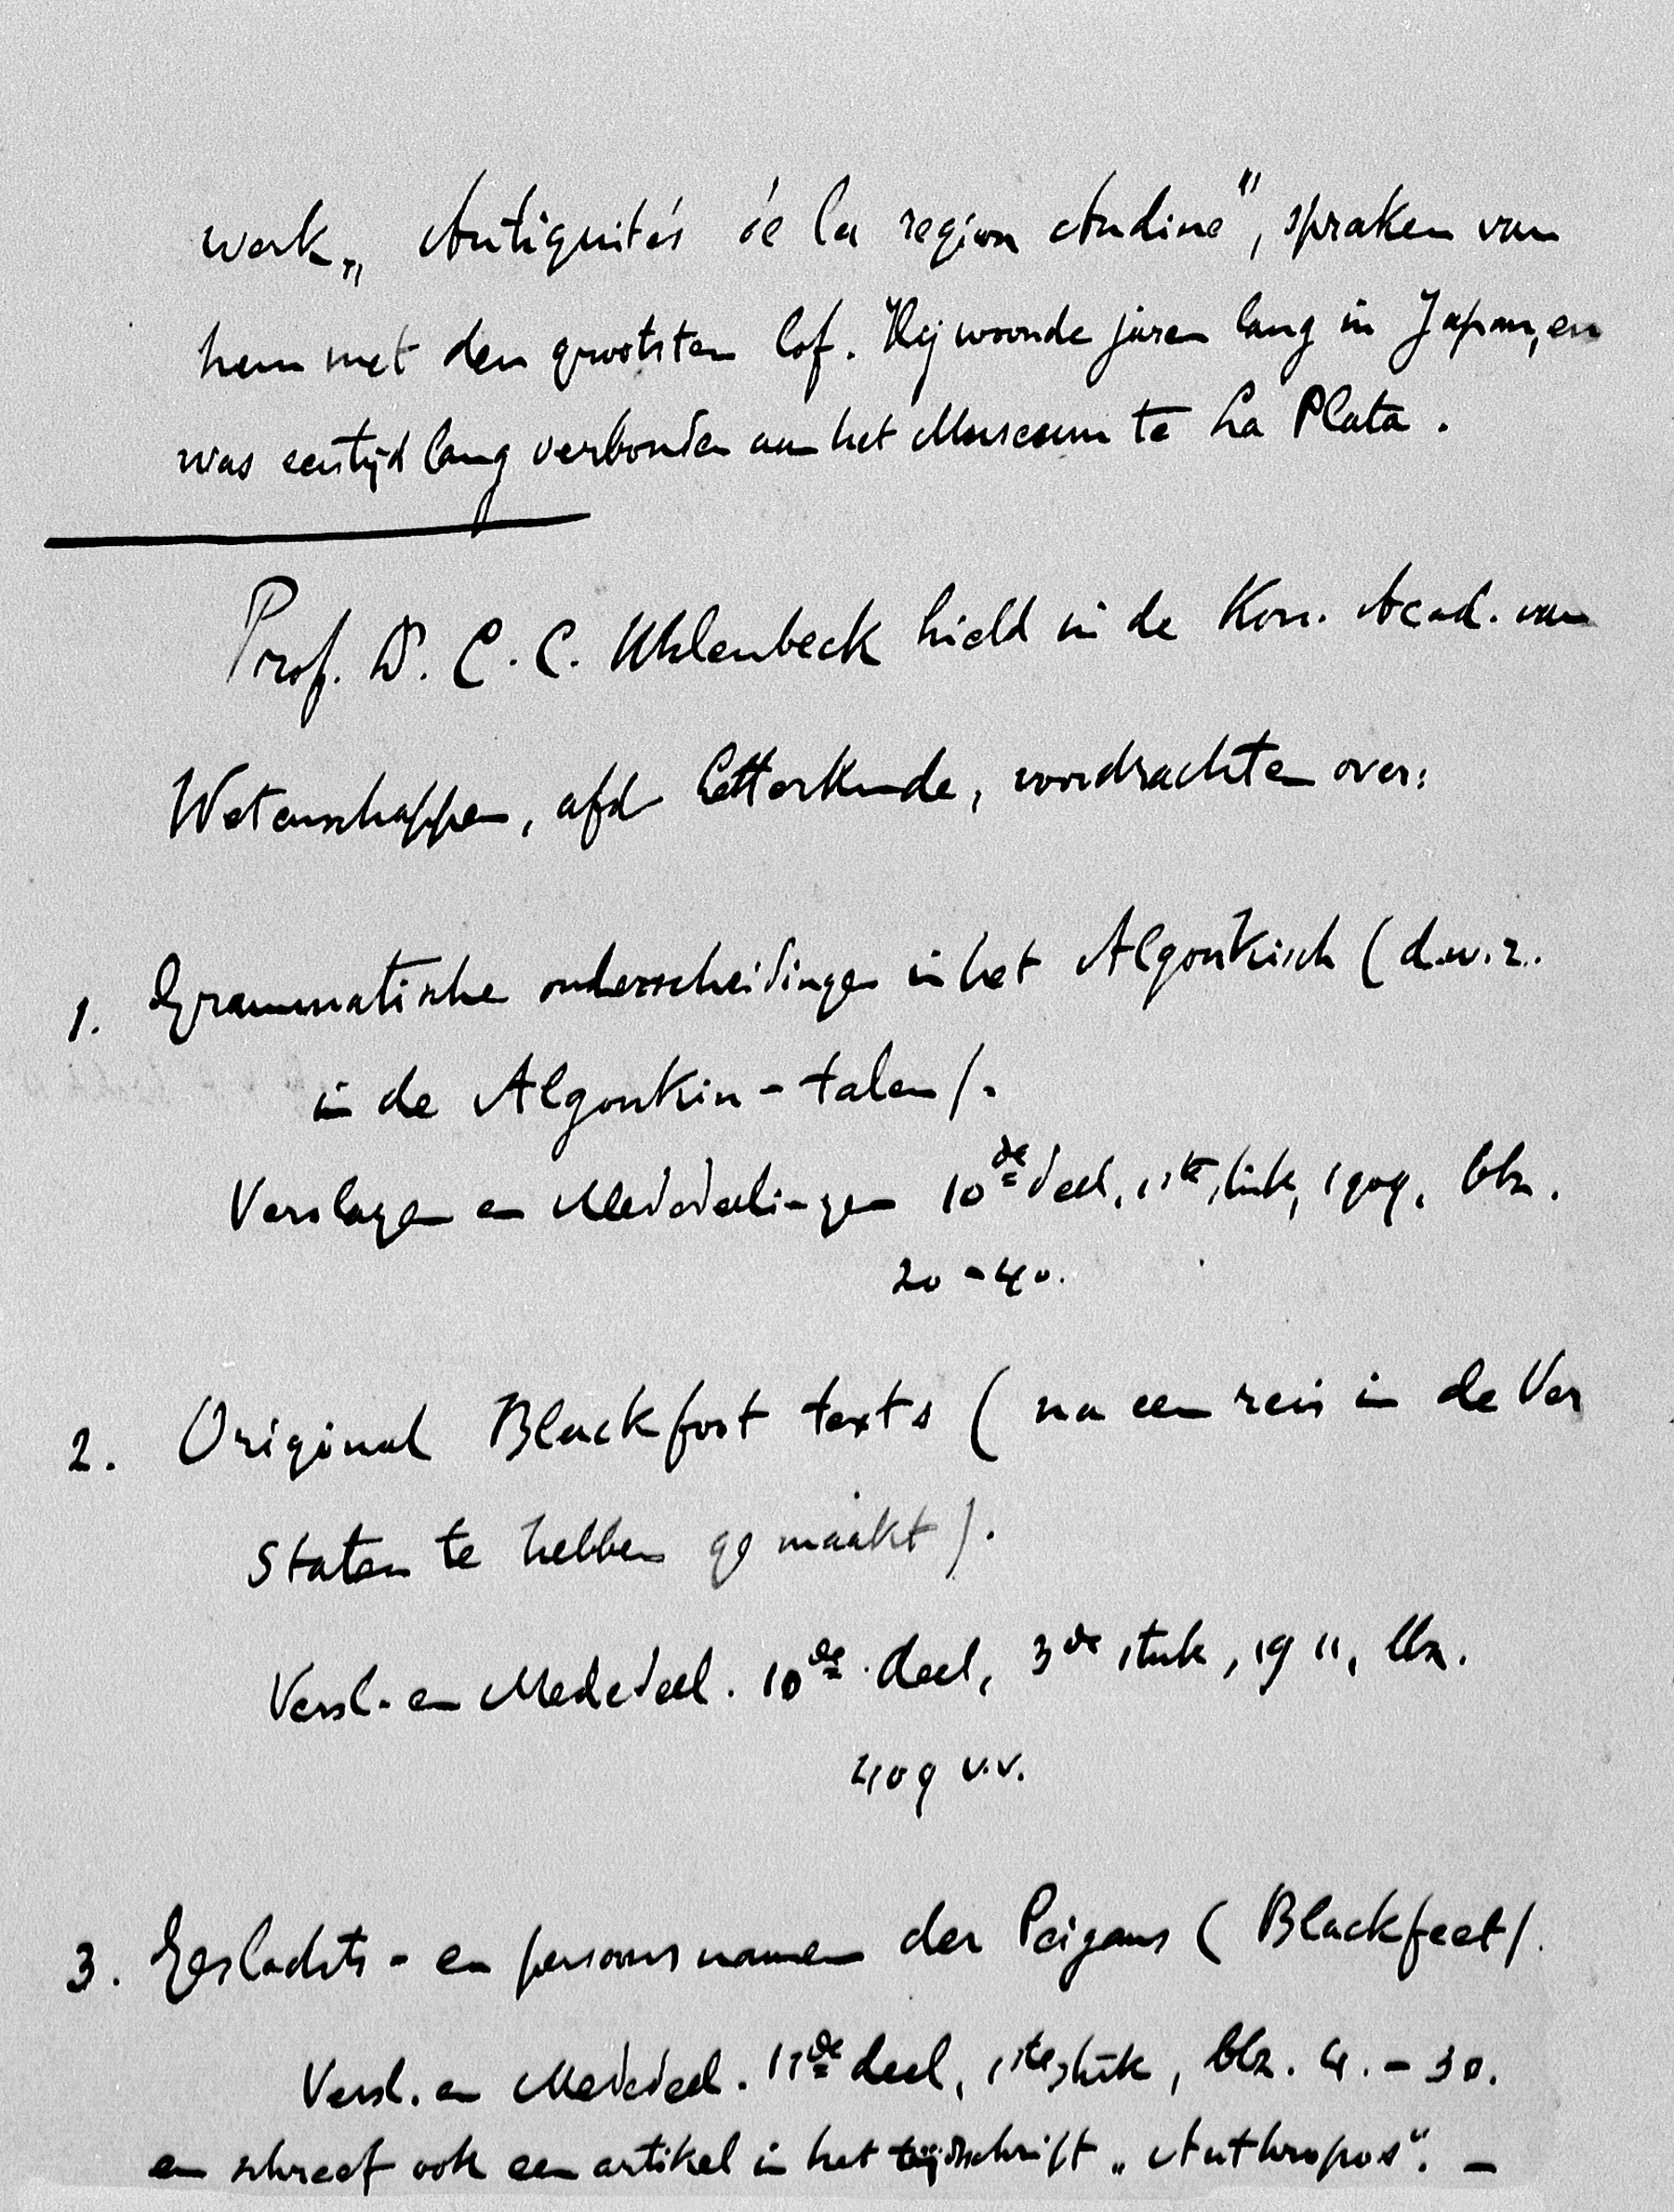 werk „Antiquités de la region Andine", spraken van
hem met den grootsten lof. Hij woonde jaren lang in Japan, en
was een tijd lang verbonden aan het Museum te La Plata.
Prof. Dr. C. C. Uhlenbeck hield in de Kon. Acad. van
Wetenschappen, afd Letterkunde, voordrachten over:
1. Grammatische onderscheidingen in het Algonkisch (d.w.z.
in de Algonkin-talen).
Verslagen en Mededeelingen 10de deel, 1ste stuk, 1909, blz.
20-40.
2. Original Blackfoot texts (na een reis in de Ver
Staten te hebben gemaakt).
Versl. en Mededeel. 10de deel, 3de stuk, 1911, blz.
409 v.v.
3. Geslachts- en persoonsnamen der Peigans (Blackfeet).
Versl. en Mededeel. 11de deel, 1ste stuk, blz. 4.-30.
en schreef ook een artikel in het tijdschrift „Anthropos". -